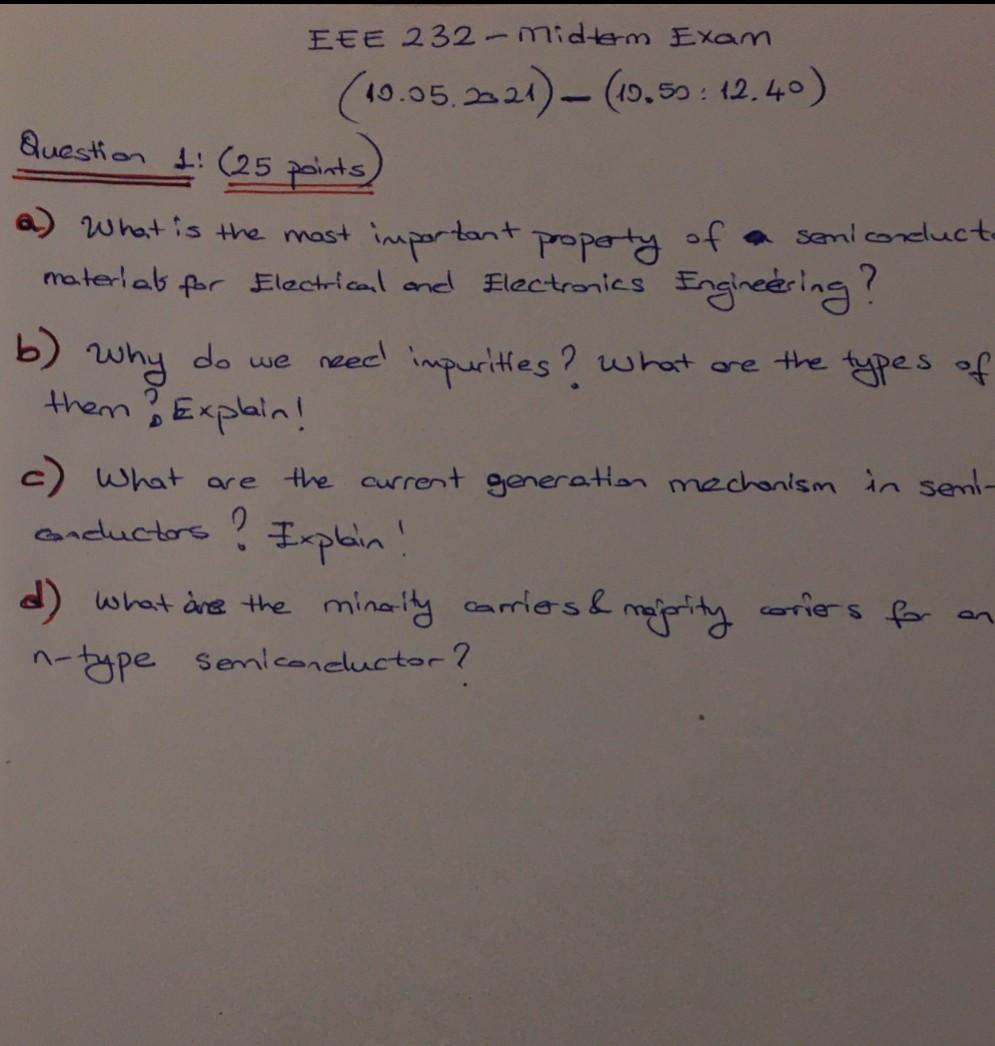 EEE 232 - Midterm Exam
(10.05.2021) - (10.50 : 12.40)
Question 1: (25 points)
a) What is the most important property of a semiconduct
materials for Electrical and Electronics Engineering?
b) Why do we need impurities? What are the types of
them? Explain!
c) What are the current generation mechanism in semi-
conductors? Explain!
d) What are the minority carriers & majority carriers for an
n-type semiconductor?